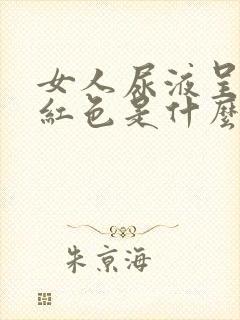 女人尿液呈
紅色是什麼
朱京海